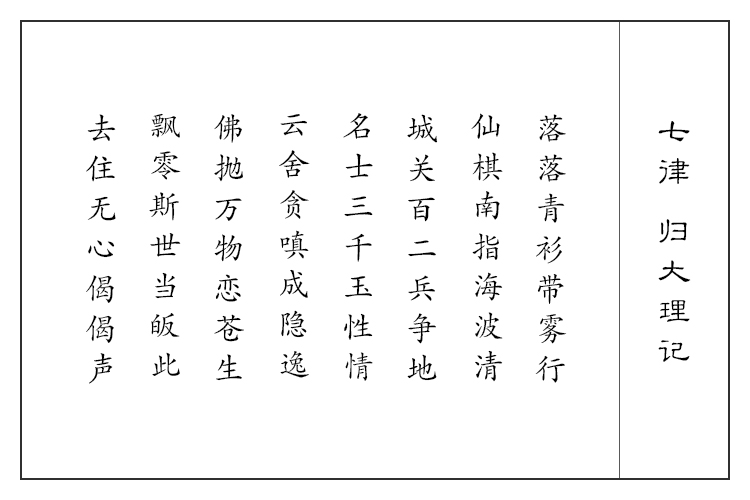 七律 归大理记
落落青衫带雾行
仙棋南指海波清
城关百二兵争地
名士三千玉性情
云舍贪嗔成隐逸
佛抛万物恋苍生
飘零斯世当皈此
去住无心偈偈声